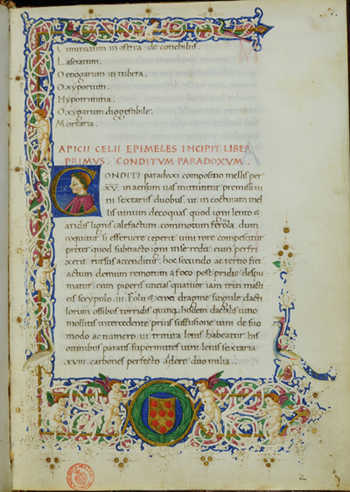 Liminatium in ostrea de conchiliis.
Laseratum.
Oenogarum in tubera.
Oxyporum.
Hypotrimma.
Oxygarum diggestibile.
Mortaria.
APICII CELII EPIMELES INCIPIT LIBER
PRIMUS. CONDITUM PARADOXUM.
CONDITI paradoxi compositio mellis per
XV. in aeneum vas mittuntur premissi in
ni sextariis duobus. ut in cocturam mel
lis vinum decoquas quod igni lento &
aridis lignis calefactum commotum ferula dum
coquitur si effervere ceperit vini rore compescitur
preter quod subtracto igni in se redit cum perfri
xerit rursus accenditur hoc secundo ac tertio fiet
ac tum demum remotum a foco post pridie despu
matur cum piperis uncias quatuor iam triti masti
ces scrypulo iii. folii & croci dragme singule dacti
lorum ossibus torridis quinque hisdem dactilis vino
mollitis intercedente prius suffusione vini de suo
modo ac numero ut tritura lenis habeatur his
omnibus paratis supermittes vini lenis sextaria
XVIII. carbones perfecto addere duo milia.
2